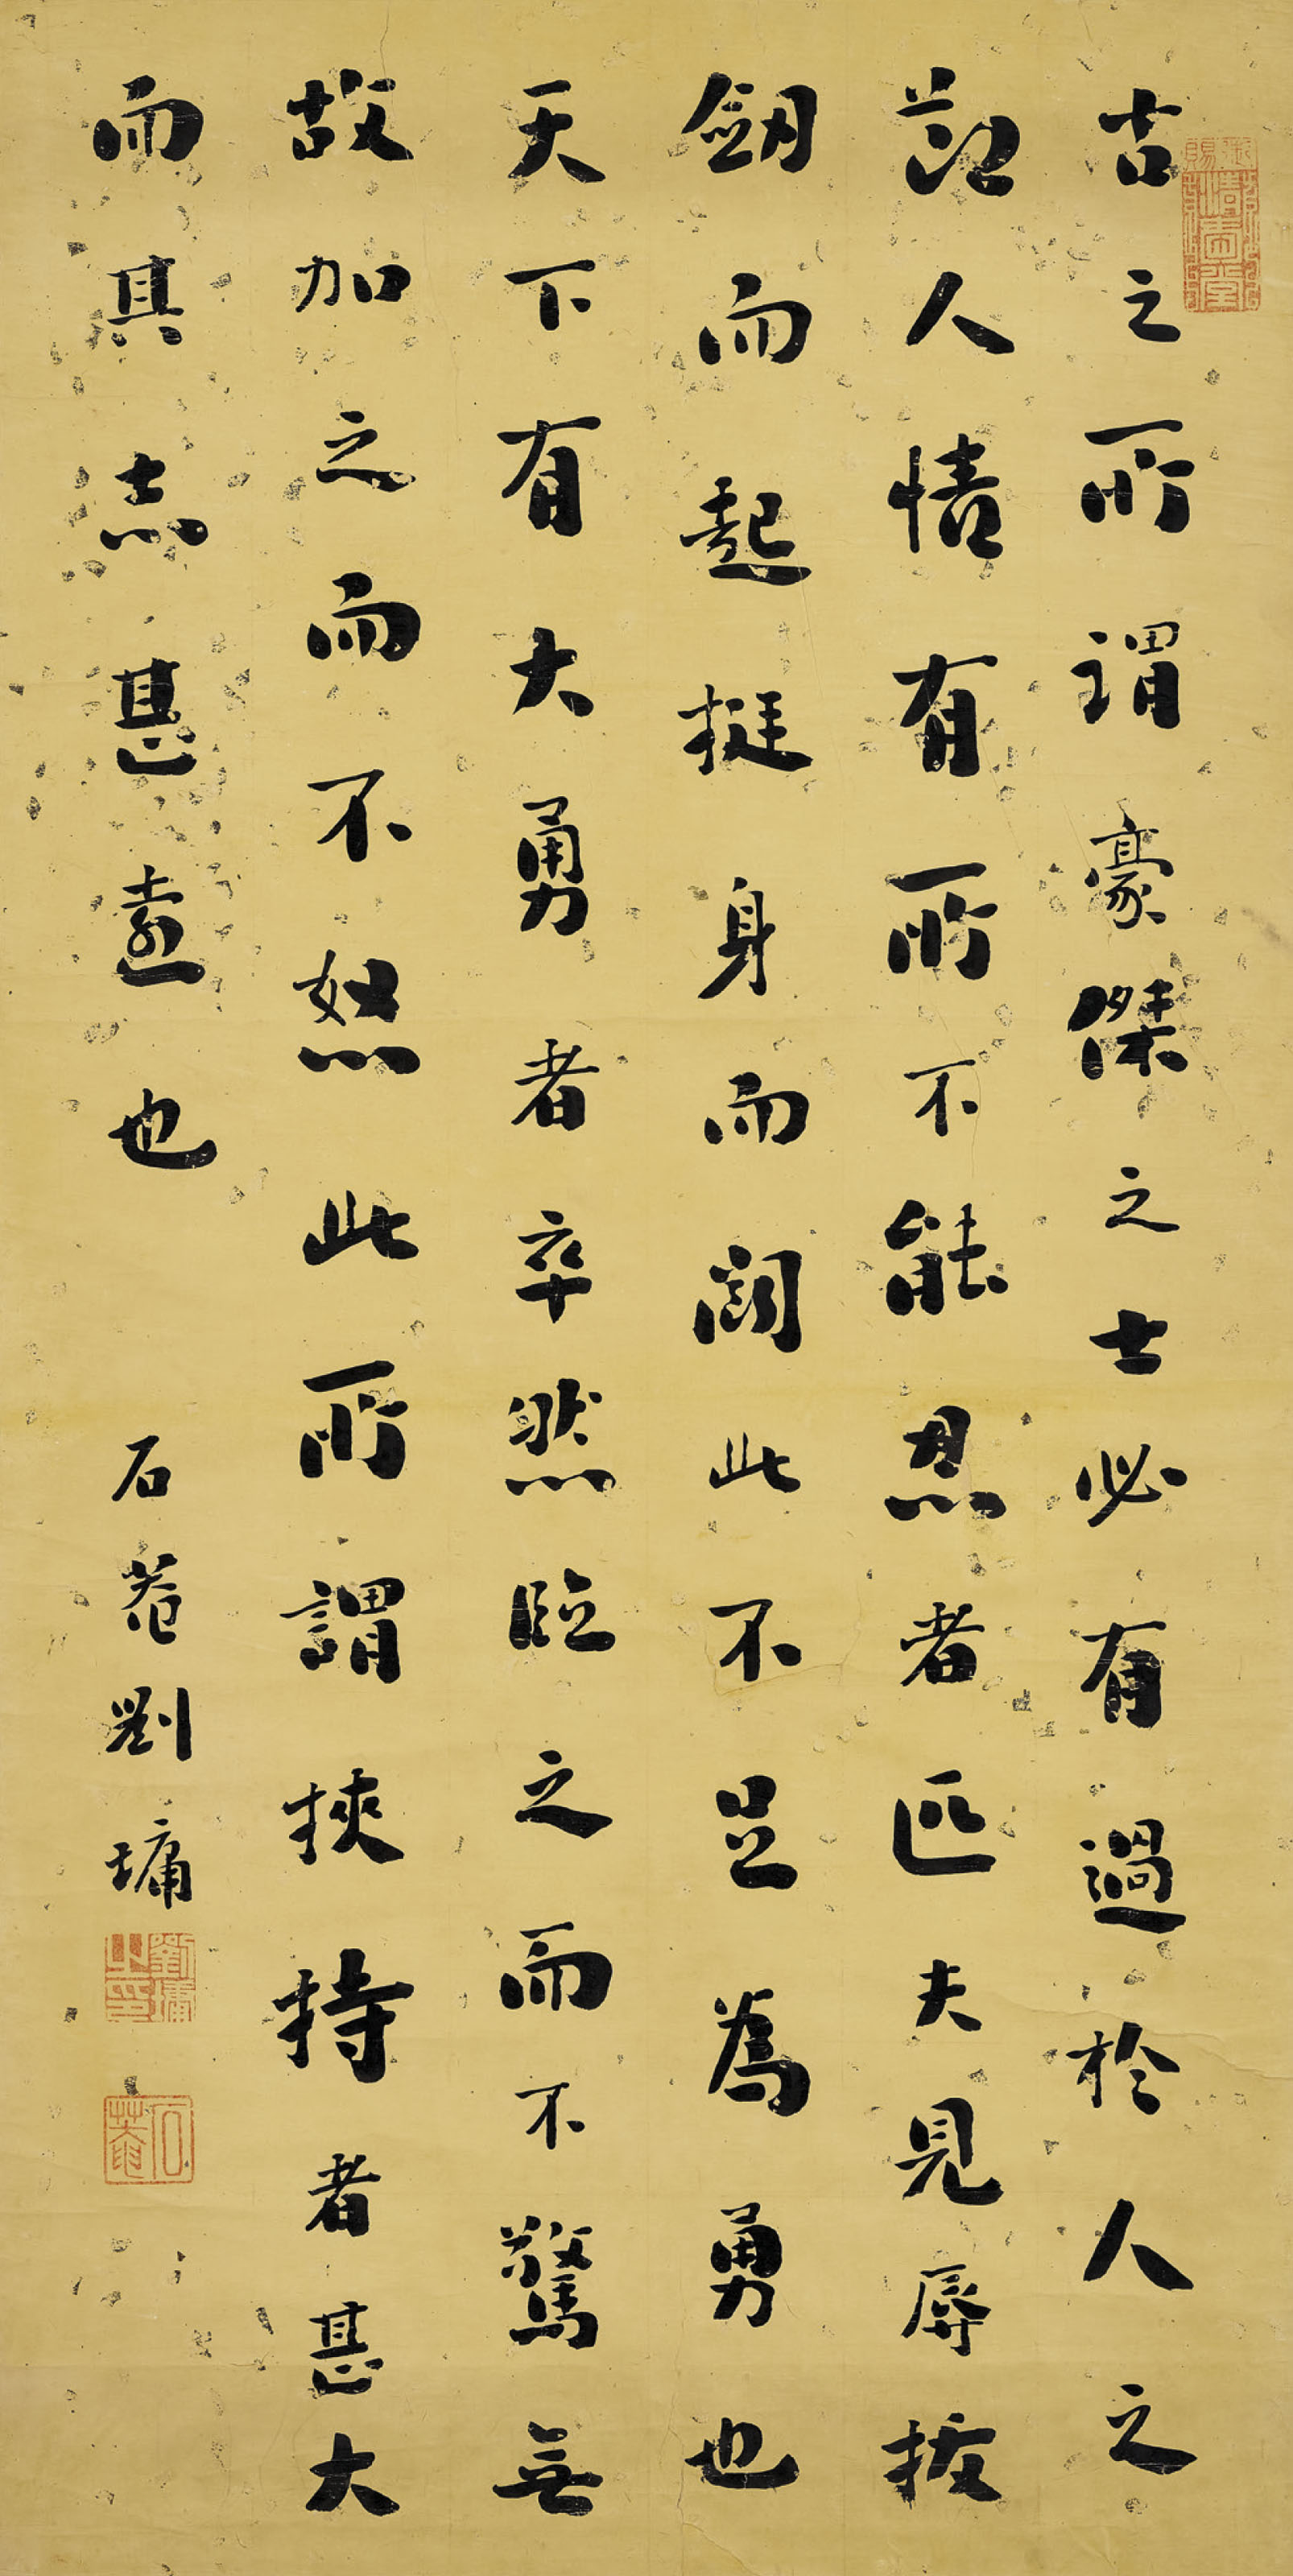 御賜清愛堂
古之所謂豪傑之士必有過於人之
節人情有所不能忍者匹夫見辱拔
劒而起挺身而鬭此不足為勇也
天下有大勇者卒然臨之而不驚無
故加之而不怒此所謂挾持者甚大
而其志甚遠也
石菴劉墉
劉墉之印
石菴